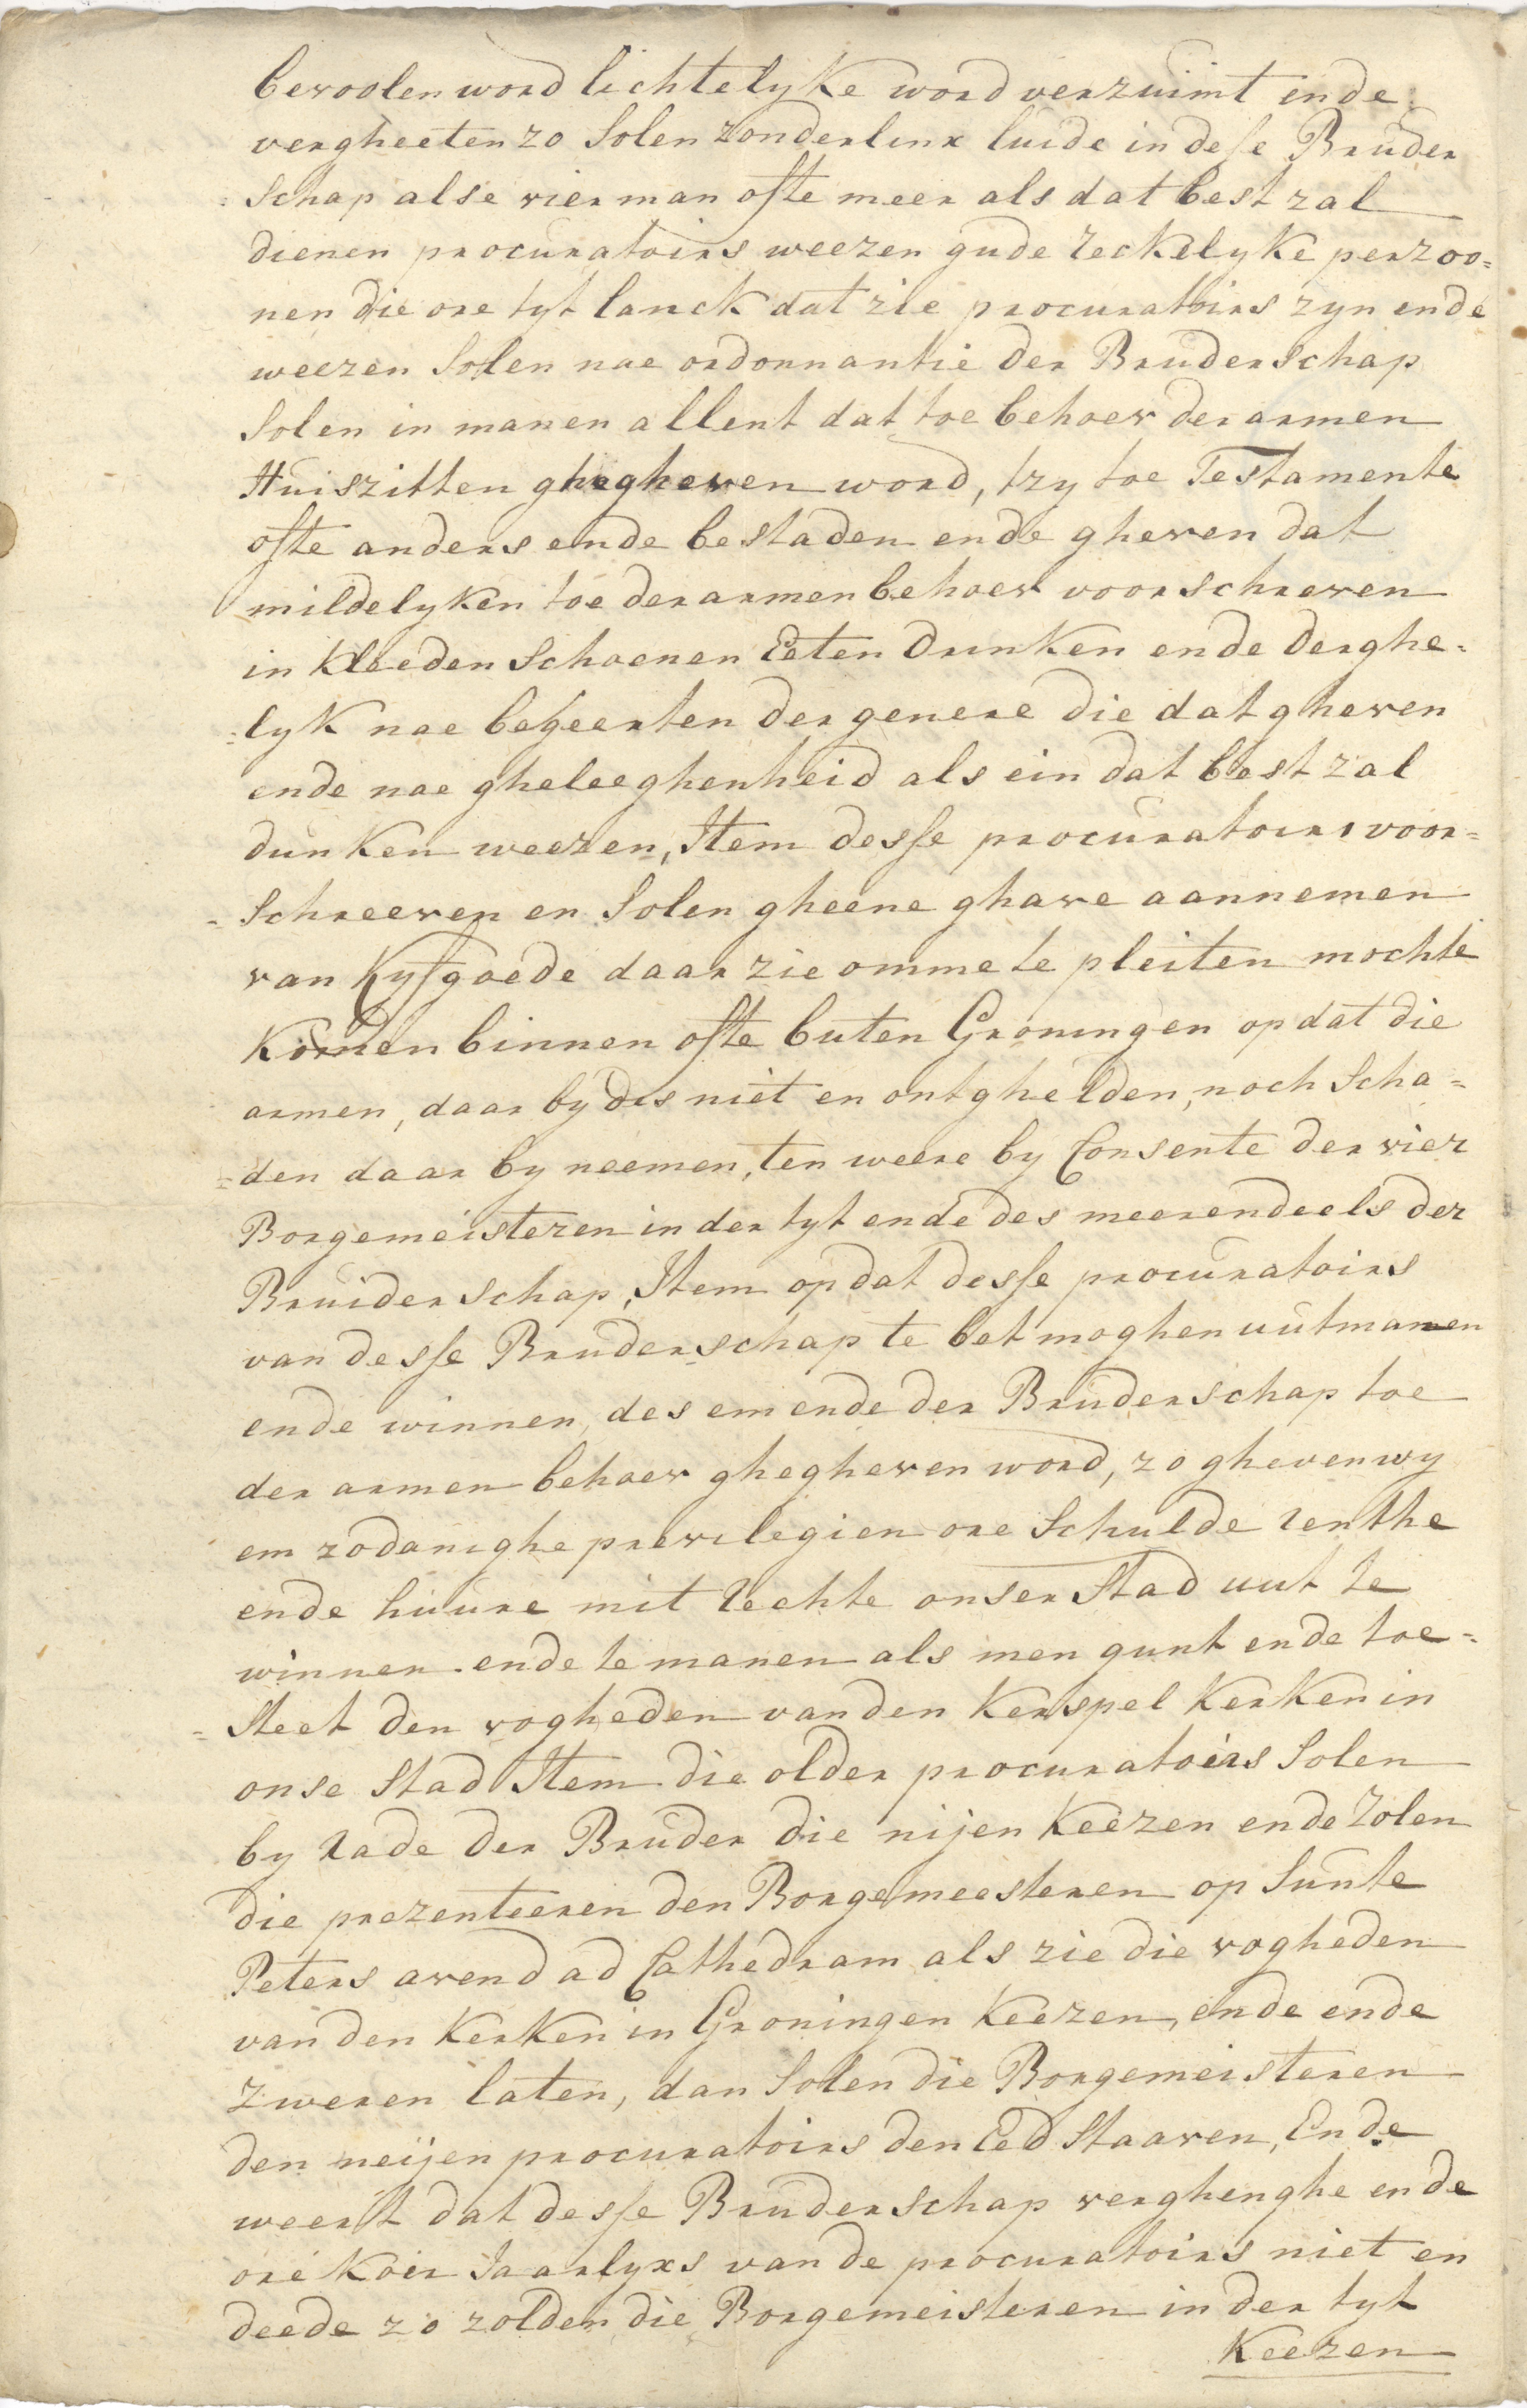 bevoolen word lichtelyke word verzuimt ende
vergheeten zo Solen zonderlinx luide in desse Bruder
=Schap alse vier man ofte meer als dat best zal
dienen procuratoirs weezen gude reckelyke perzoo=
nen die ore tyt lanck dat zie procuratoirs zyn ende
weezen Solen nae ordonnantie der Bruderschap
Solen in manen allent dat toe behoev der armen
Huiszitten ghegheven word, tzy toe Testamente
ofte anders ende bestaden ende gheven dat
mildelyken toe der armen behoev voorschreven
in kleeden Schoenen Eeten Drinken ende derghe=
=lyk nae begeerten der genere die dat gheven
ende nae gheleeghenheid als ein dat best zal
dunken weezen, Item desse procuratoirs voor=
=Schreeven en Solen gheene ghave aannemen
van Kyfgoede daar zie omme te pleiten mochte
Komen binnen ofte buten Groningen op dat die
armen, daar by des niet en ontghelden, noch Scha=
=den daar by neemen, ten weere by Consente der vier
Borgemeisteren in der tyt ende des meerendeels der
Bruiderschap, Item op dat desse procuratoirs
van desse Bruderschap te bet moghen uutmanen
ende winnen, des em ende der Bruderschap toe
der armen behoev ghegheven word, zo gheven wy
em zodanighe previlegien ore Schulde renthe
ende huure mit rechte onser Stad uut te
winnen ende te manen als men gunt ende toe=
=Steet den vogheden van den Kerspel Kerken in
onse Stad Item die older procuratoirs Solen
by rade der Bruder die nijen Keezen ende Zolen
die prezenteeren den Borgemeesteren op Sunte
Peters avend ad Cathedram als zie die vogheden
van den Kerken in Groningen Keezen, ende ende
zweren laten, dan Solen die Borgemeisteren
den neijen procuratoirs den Eed Staaven, Ende
weert dat desse Bruderschap verghenghe ende
ore Koer Jaarlyxs van de procuratoirs niet en
deede zo zolden die Borgemeisteren in der tyt
Keezen